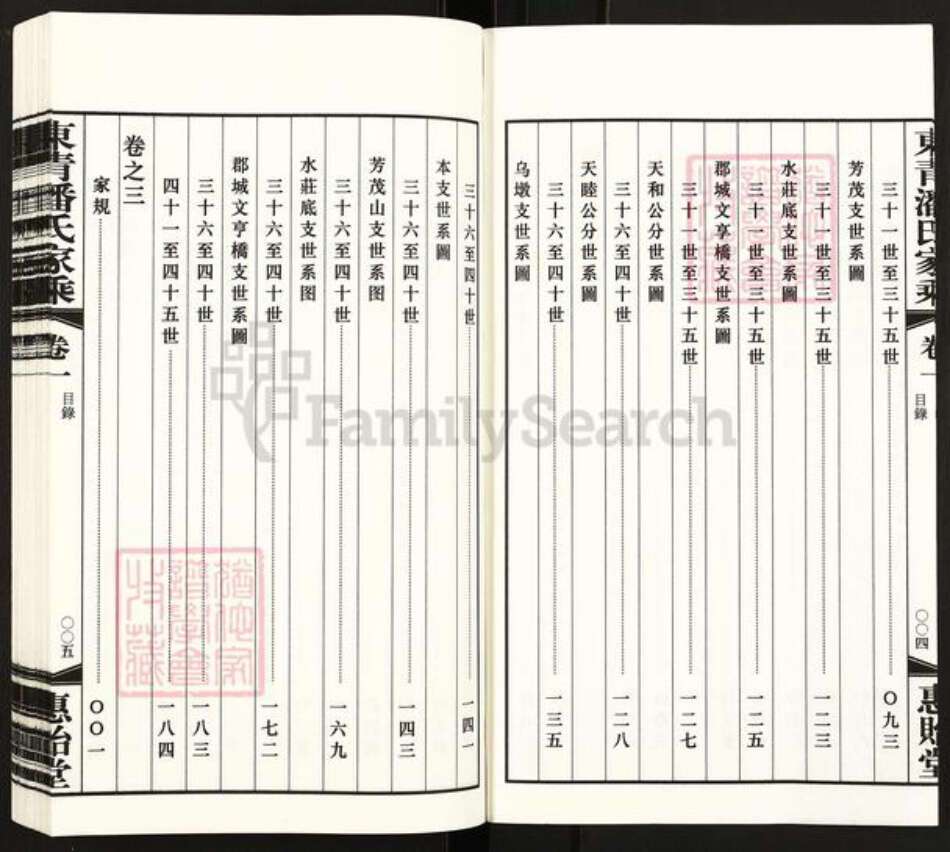 東青潘氏家乘
卷一
目錄
〇〇四
惠貽堂
三十一世至三十五世 〇九三
芳茂支世系圖
三十一世至三十五世 一二三
水莊底支世系圖
三十一世至三十五世 一二五
郡城文亨橋支世系圖
三十一世至三十五世 一二七
天和公分世系圖
三十六至四十世 一二八
天睦公分世系圖
三十六至四十世 一三五
烏墩支世系圖
三十六至四十世 一四一
本支世系圖
三十六至四十世 一四三
芳茂山支世系图
三十六至四十世 一六九
水莊底支世系图
三十六至四十世 一七二
郡城文亨橋支世系圖
三十六至四十世 一八三
四十一至四十五世 一八四
卷之三
家規 〇〇一
東青潘氏家乘
卷一
目錄
〇〇五
惠貽堂
FamilySearch